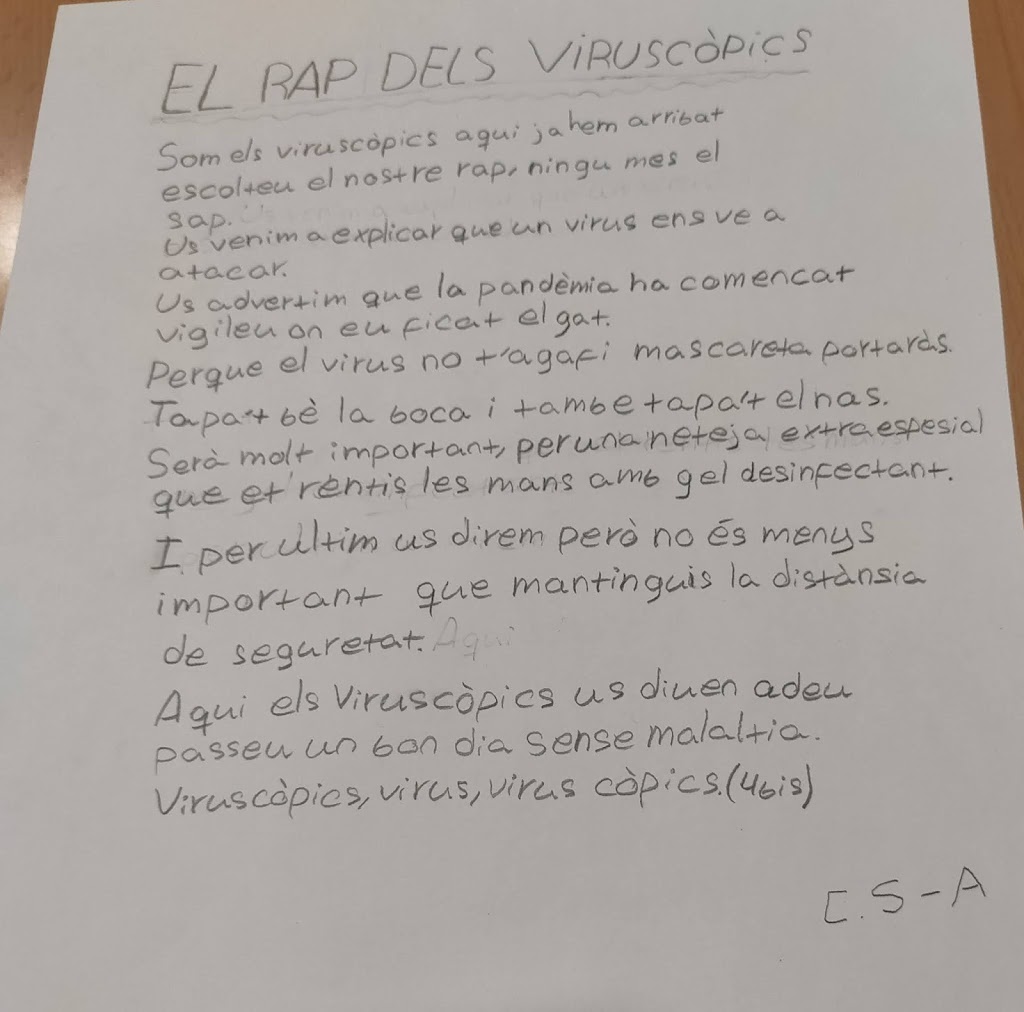 EL RAP DELS VIRUSCÒPICS
Som els viruscòpics aqui ja hem arribat
escolteu el nostre rap, ningu mes el
sap.
Us venim a explicar que un virus ens ve a
atacar.
Us advertim que la pandèmia ha comencat
vigileu on eu ficat el gat.
Perque el virus no t'agafi mascareta portaràs.
Tapa't bè la boca i tambe tapa't el nas.
Serà molt important, per una neteja extraespesial
que et rèntis les mans amb gel desinfectant.
I per ultim us direm però no és menys
important que mantinguis la distànsia
de seguretat. Aqui
Aqui els Viruscòpics us diuen adeu
passeu un bon dia sense malaltia.
Viruscòpics, virus, virus còpics.(4bis)
C.S-A